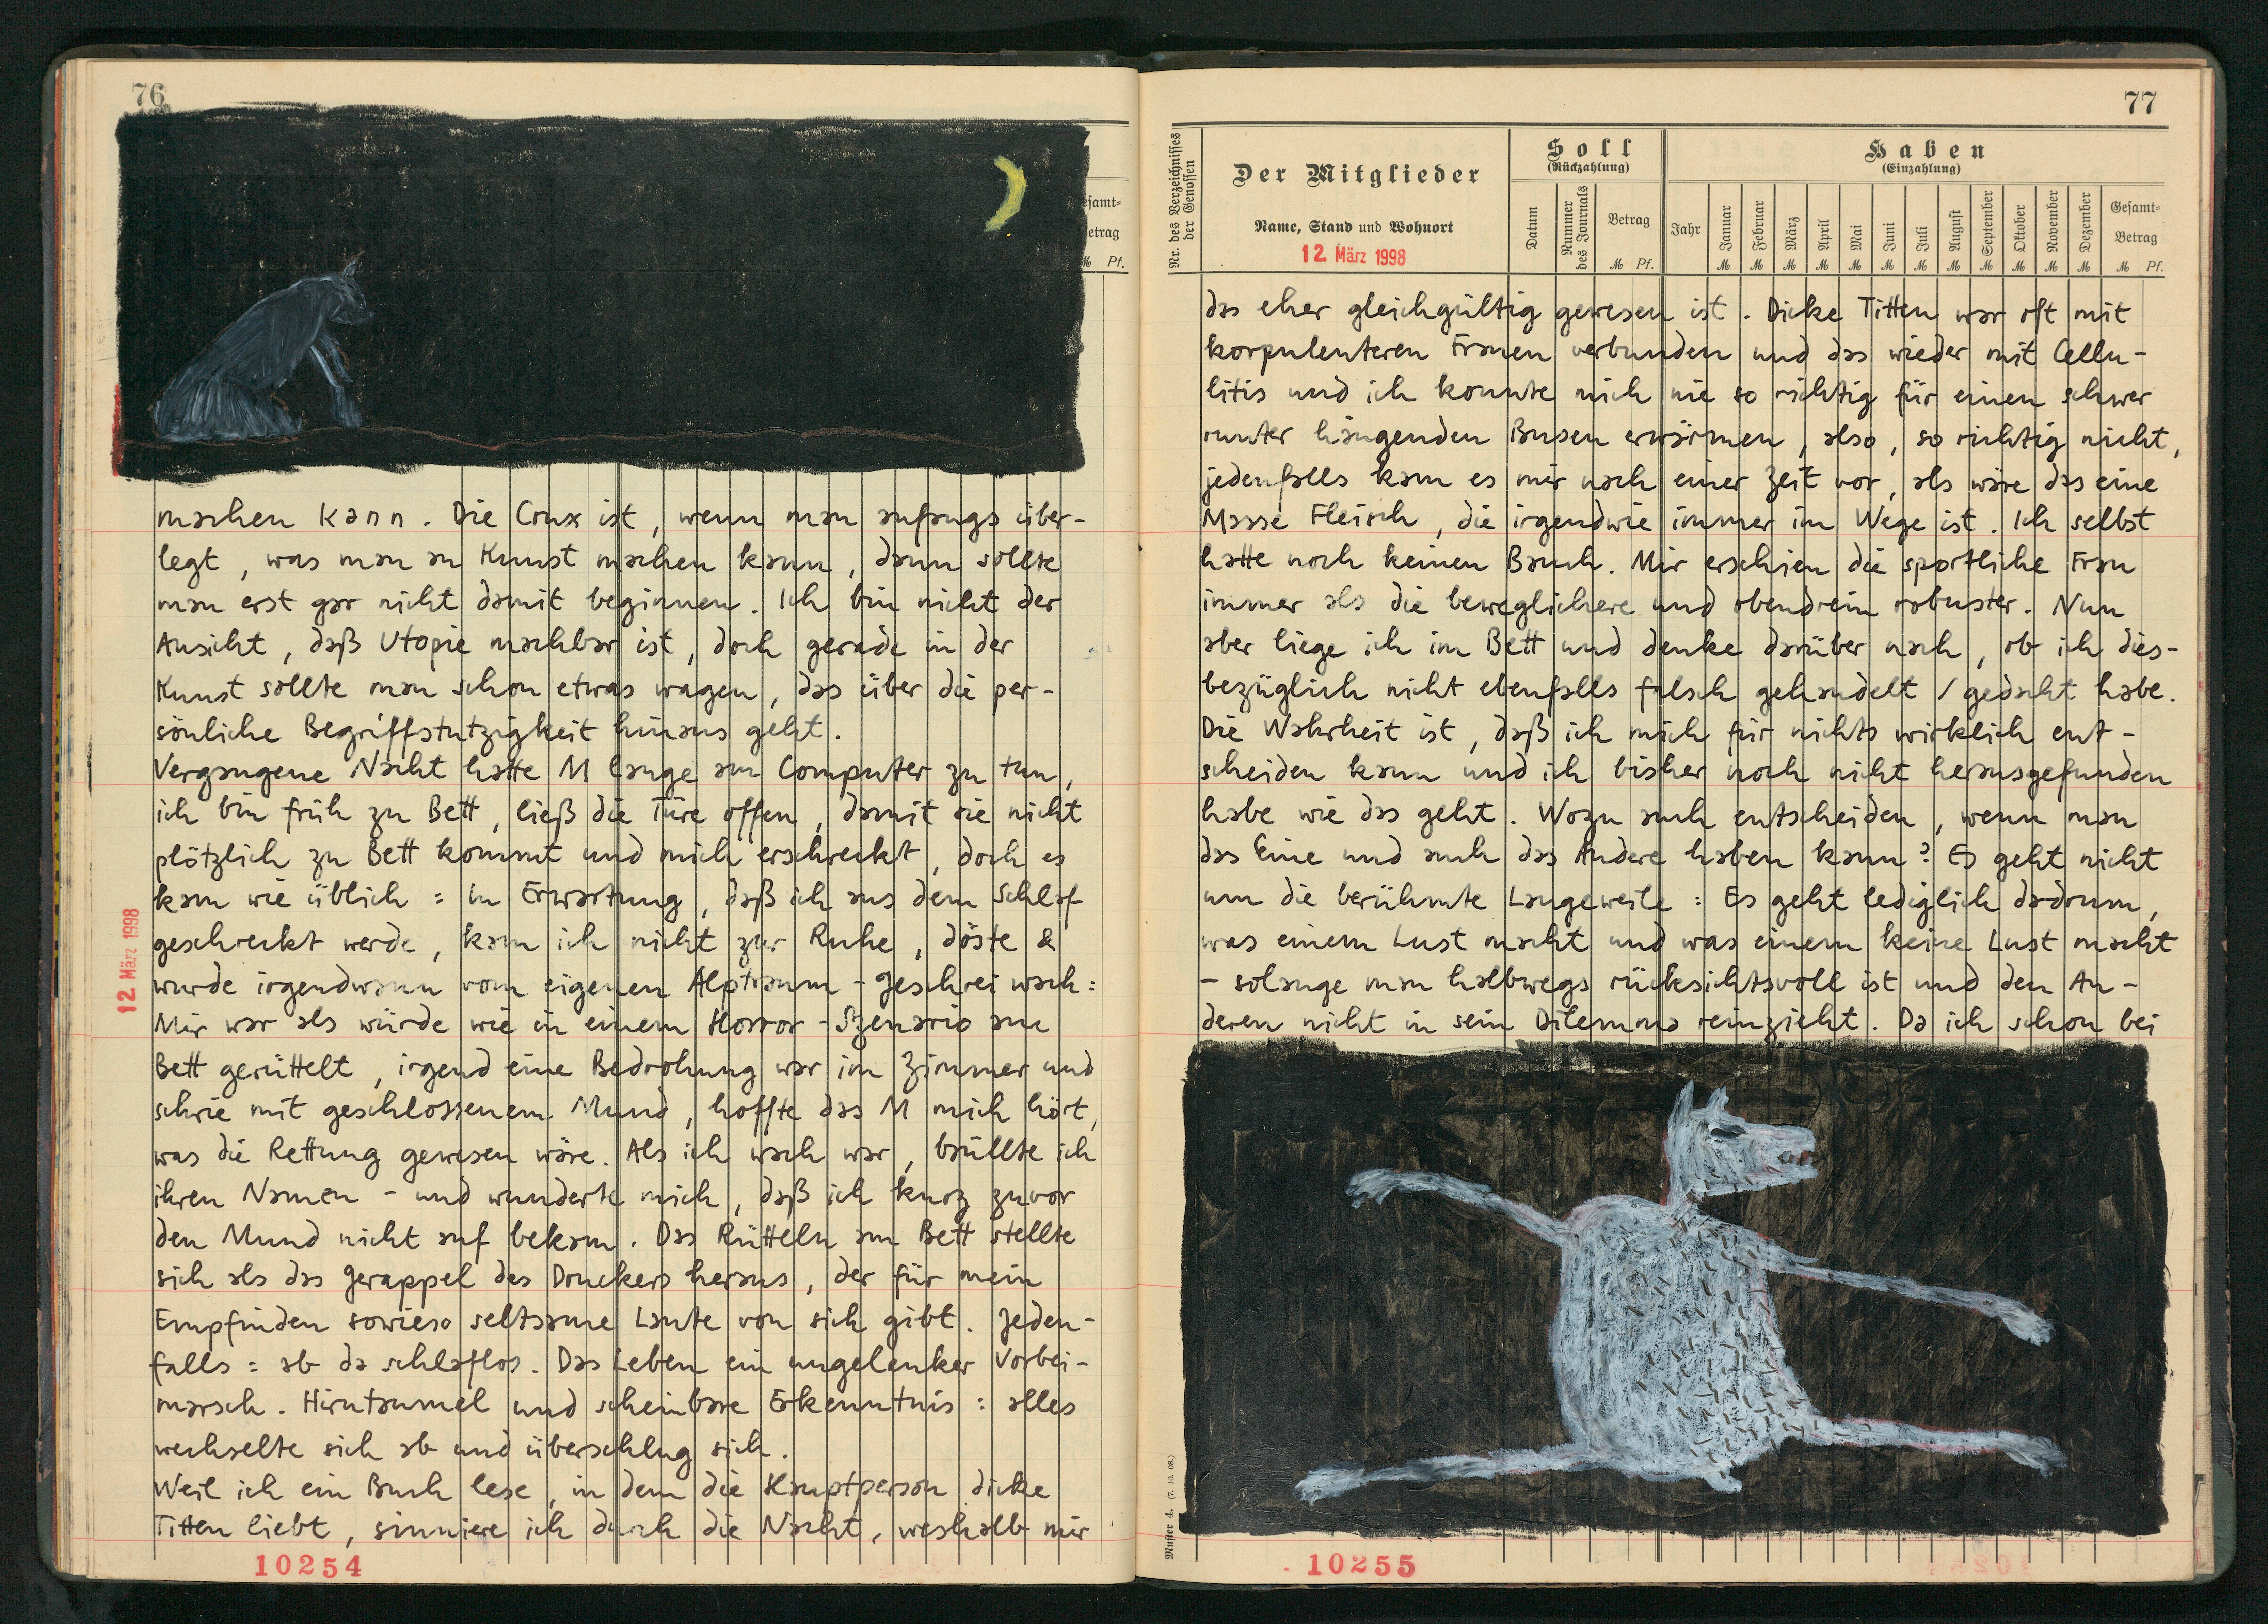 76
esamt-
etrag
M Pf.
machen kann. Die Crux ist, wenn man anfangs über-
legt, was man an Kunst machen kann, dann sollte
man erst gar nicht damit beginnen. Ich bin nicht der
Ansicht, daß Utopie machbar ist, doch gerade in der
Kunst sollte man schon etwas wagen, das über die per-
sönliche Begriffstutzigkeit hinaus geht.
Vergangene Nacht hatte M lange am Computer zu tun,
ich bin früh zu Bett, ließ die Türe offen, damit sie nicht
plötzlich zu Bett kommt und mich erschreckt, doch es
kam wie üblich: in Erwartung, daß ich aus dem Schlaf
geschreckt werde, kam ich nicht zur Ruhe, döste &
wurde irgendwann vom eigenen Alptraum-Geschrei wach:
Mir war als würde wie in einem Horror-Szenario am
Bett gerüttelt, irgend eine Bedrohung war im Zimmer und
schrie mit geschlossenem Mund, hoffte das M mich hört,
was die Rettung gewesen wäre. Als ich wach war, brüllte ich
ihren Namen - und wunderte mich, daß ich kurz zuvor
den Mund nicht auf bekam. Das Rütteln am Bett stellte
sich als das Gerappel des Druckers heraus, der für mein
Empfinden sowieso seltsame Laute von sich gibt. Jeden-
falls: ab da schlaflos. Das Leben ein ungelenker Vorbei-
marsch. Hirntaumel und scheinbare Erkenntnis: alles
wechselte sich ab und überschlug sich.
Weil ich ein Buch lese, in dem die Hauptperson dicke
Titten liebt, sinniere ich durch die Nacht, weshalb mir
12. März 1998
10254
77
Nr. des Verzeichnisses
der Genossen
Der Mitglieder
Name, Stand und Wohnort
12. März 1998
Soll
(Rückzahlung)
Datum
Nummer
des Journals
Betrag
M Pf.
Haben
(Einzahlung)
Jahr
Januar
Februar
März
April
Mai
Juni
Juli
August
September
Oktober
November
Dezember
M M M M M M M M M M M M
Gesamt-
Betrag
M Pf.
das eher gleichgültig gewesen ist. Dicke Titten war oft mit
korpulenteren Frauen verbunden und das wieder mit Cellu-
litis und ich konnte mich nie so richtig für einen schwer
runter hängenden Busen erwärmen, also, so richtig nicht,
jedenfalls kam es mir nach einer Zeit vor, als wäre das eine
Masse Fleisch, die irgendwie immer im Wege ist. Ich selbst
hatte noch keinen Bauch. Mir erschien die sportliche Frau
immer als die beweglichere und obendrein robuster. Nun
aber liege ich im Bett und denke darüber nach, ob ich dies-
bezüglich nicht ebenfalls falsch gehandelt / gedacht habe.
Die Wahrheit ist, daß ich mich für nichts wirklich ent-
scheiden kann und ich bisher noch nicht herausgefunden
habe wie das geht. Wozu auch entscheiden, wenn man
das Eine und auch das Andere haben kann? Es geht nicht
um die berühmte Langeweile: Es geht lediglich dadrum,
was einem Lust macht und was einem keine Lust macht
- solange man halbwegs rücksichtsvoll ist und den An-
deren nicht in sein Dilemma reinzieht. Da ich schon bei
Muster 4. (7. 10. 08.)
10255